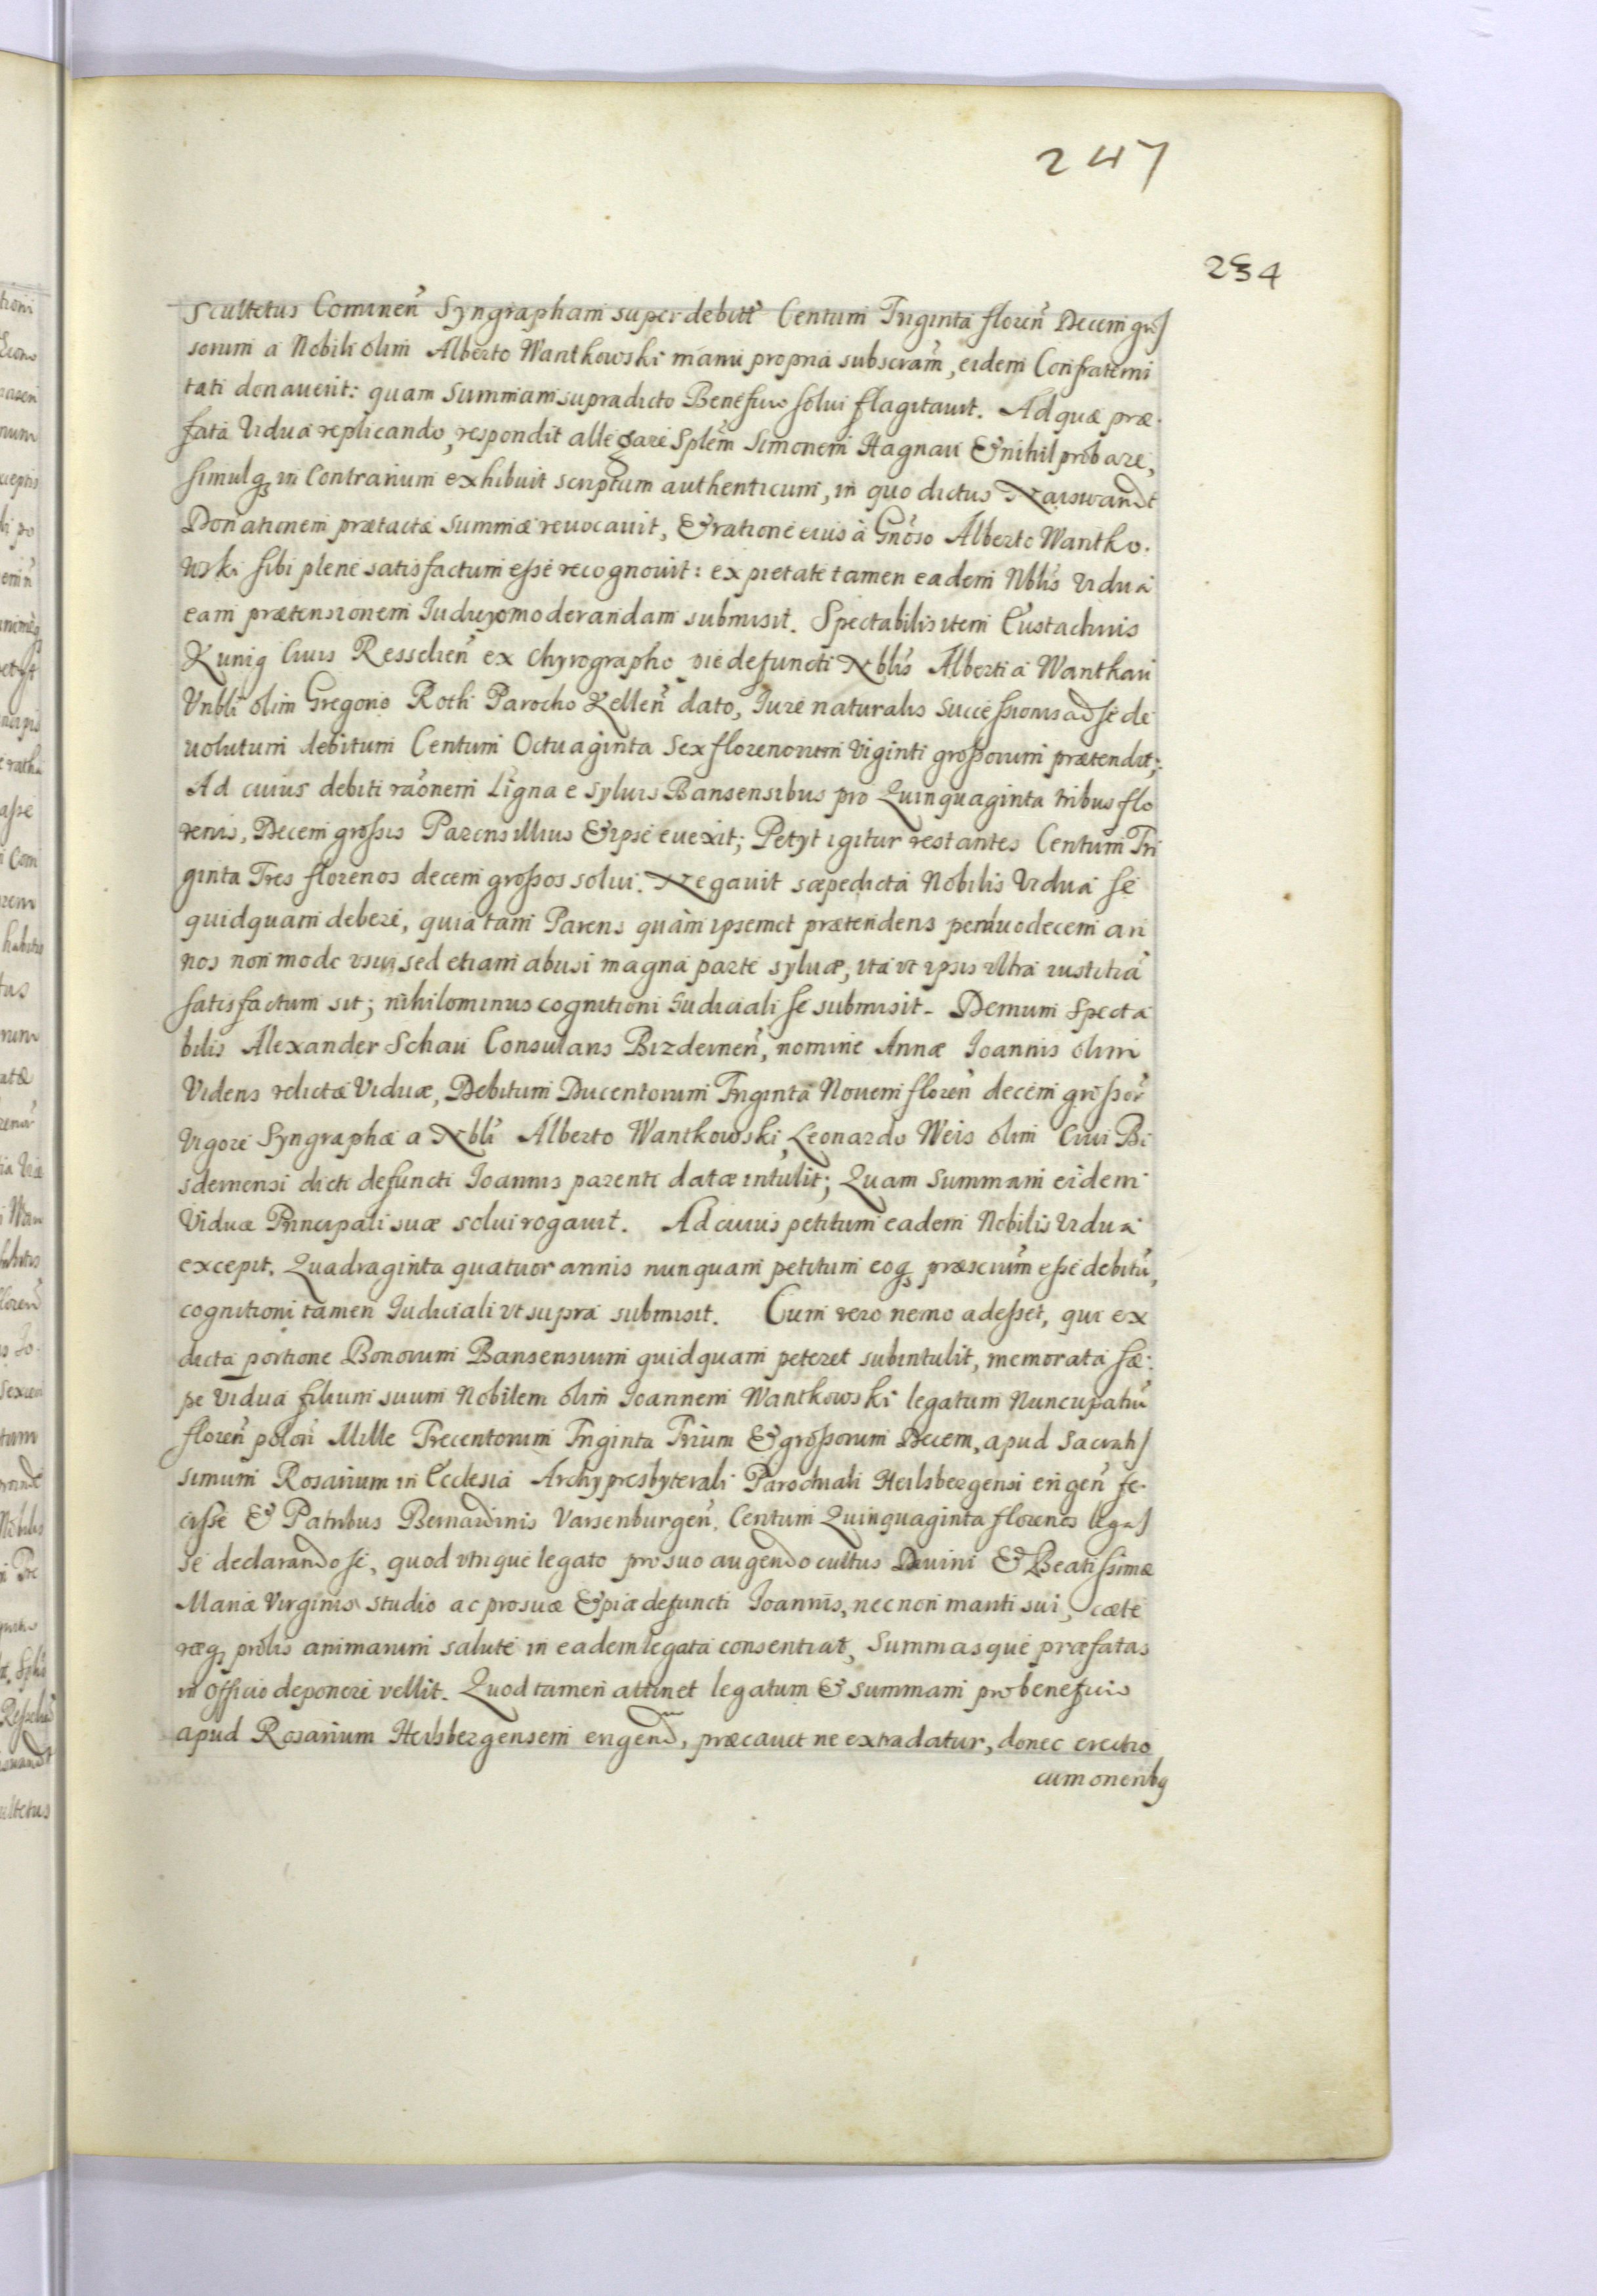 247
234
Scultetus Cominen̄ Syngrapham super debitū Centum Triginta floren̄ Decem gros
sorum a Nobili olim Alberto Wantkowski manu propria subscram̄, eidem Confraterni
tati donaverit: quam summam supradicto Beneficio solui flagitauit. Ad quæ præ.
fata Vidua replicando, respondit allegare Splēm Simonem Hagnau & nihil probare,
simulq̢ in Contrarium exhibuit scriptum authenticum, in quo dictus Naiswandt
Donationem prætactæ summæ reuocauit, & ratione eius à Gnōso Alberto Wantko.
wski sibi plene satisfactum esse recognouit: ex pietate tamen eadem Nblīs Vidua
eam prætensionem Iudicio moderandam submisit. Spectabilis item Eustachius
Kunig Ciuis Resselien̄ ex Chyrographo pie defuncti Nblīs Alberti a Wantkau
Vnblī olim Gregorio Roth Parocho Kellen̄ dato, Iure naturalis Successionis ad se de
uolutum debitum Centum Octuaginta Sex florenorum Viginti grossorum prætendit;
Ad cuius debiti raōnem Ligna e syluis Bansensibus pro Quinquaginta tribus flo
renis, Decem grossis Parens illius & ipse euexit; Petyt igitur restantes Centum Tri
ginta Tres florenos decem grossos solui. Negauit sæpedicta Nobilis Vidua se
quidquam debere, quia tam Parens quàm ipsemet prætendens per duodecem an
nos non modo usui, sed etiam abusi magna parte syluæ, ita ut ipsis ultra iustitiā
satisfactum sit; nihilominus cognitioni Iudiciali se submisit. Demum Specta
bilis Alexander Schau Consularis Bizdeinen̄, nomine Annæ Ioannis olim
Videns relictæ Viduæ, Debitum Ducentorum Triginta Nouem floren̄ decem grossor̄
Vigore Syngraphæ a Nblī Alberto Wantkowski, Leonardo Weis olim Ciui Bi
sdemensi dicti defuncti Ioannis parenti datæ intulit; Quam Summam eidem
Viduæ Principali suæ solui rogauit. Ad cuius petitum eadem Nobilis Vidua
excepit. Quadraginta quatuor annis nunquam petitum eoq̢ præscrium̄ esse debitū,
cognitioni tamen Iudiciali ut supra submisit. Cum vero nemo adesset, qui ex
dicta portione Bonorum Bansensium quidquam peteret subintulit, memorata sæ.
pe Vidua filium suum Nobilem olim Ioannem Wantkowski legatum Nuncupatiū
floren̄ polon̄ Mille Trecentorum Triginta Trium & grossorum Decem, apud Sacratis
simum Rosarium in Ecclesia Archypresbyterali Parochiali Heilsbergensi erigen̄ fe.
cisse & Patribus Bernardinis Varsenburgen̄. Centum Quinquaginta florenos legas
se declarando se, quod utrique legato pro suo augendo cultus Diuini & Beatissimæ
Mariæ Virginis studio ac pro suæ & piæ defuncti Ioannis, nec non mariti sui, cæte
ræq̢ prolis animarum salute in eadem legata consentiat, summasque præfatas
in Officio deponere vellit. Quod tamen attinet legatum & summam pro beneficio
apud Rosarium Heilsbergensem erigend̄, præcauet ne extradatur, donec erectio
cum onerib9